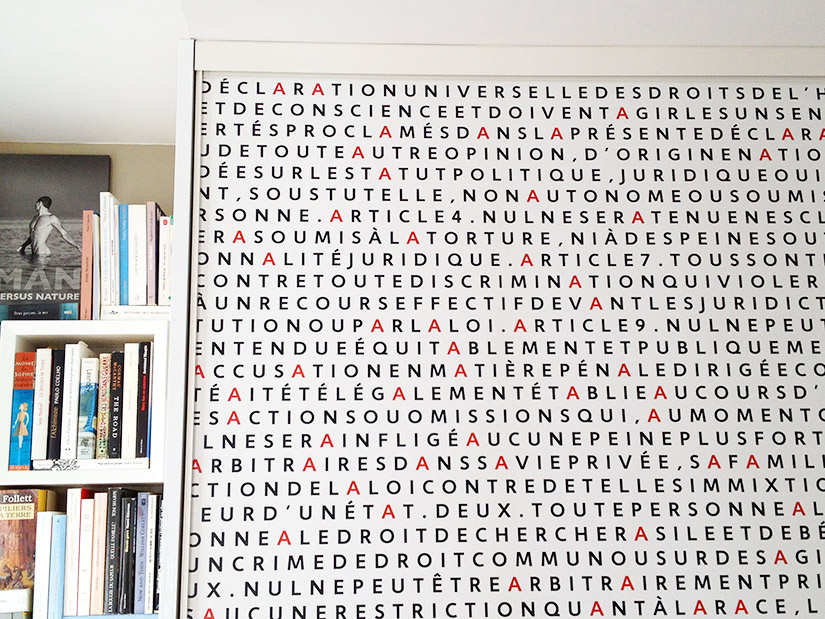 DÉCLARATIONUNIVERSELLEDESDROITSDEL'H
ETDECONSCIENCEETDOIVENTAGIRLESUNSEN
ERTÉSPROCLAMÉSDANSLAPRÉSENTEDÉCLARA
UDETOUTEAUTREOPINION,D'ORIGINENATIO
DÉESURLESTATUTPOLITIQUE,JURIDIQUEOUI
NT,SOUSTUTELLE,NONAUTONOMEOUSOUMIS
RSONNE.ARTICLE4.NULNESERATENUENESCL
ERASOUMISÀLATORTURE,NIÀDESPEINESOUT
ONNALITÉJURIDIQUE.ARTICLE7.TOUSSONT
CONTRETOUTEDISCRIMINATIONQUIVIOLER
ÀUNRECOURSEFFECTIFDEVANTLESJURIDICT
TUTIONOUPARLALOI.ARTICLE9.NULNEPEUT
ENTENDUEÉQUITABLEMENTETPUBLIQUEME
ACCUSATIONENMATIÈREPÉNALEDIRIGÉECO
TÉAITÉTÉLÉGALEMENTÉTABLIEAUCOURSD'
ESACTIONSOUOMISSIONSQUI,AUMOMENTO
LNESERAINFLIGÉAUCUNEPEINEPLUSFORT
ARBITRAIRESDANSSAVIEPRIVÉE,SAFAMILL
CTIONDELALOICONTREDETELLESIMMIXTIO
EURD'UNÉTAT.DEUX.TOUTEPERSONNEAL
ONNEALEDROITDECHERCHERASILEETDEBÉ
UNCRIMEDEDROITCOMMUNOUSURDESAGI
UX.NULNEPEUTÊTREARBITRAIREMENTPRI
AUCUNERESTRICTIONQUANTÀLARACE,L
MAN
VERSUS NATURE
PAULO COELHO
CORMAC McCARTHY THE ROAD
Follett
PILIERS
A TERRE